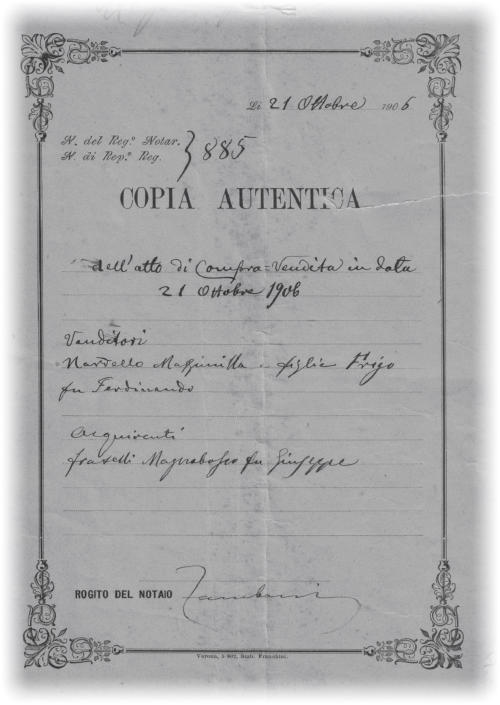 Li 21 Ottobre 1906
N. del Reg.º Notar.
N. di Rep.º Reg. } 885
COPIA AUTENTICA
dell'atto di Compra=Vendita in data
21 Ottobre 1906
Venditori
Nardello Massimilla e figlie Frigo
fu Ferdinando
Acquirenti
fratelli Magnabosco fu Giuseppe
ROGITO DEL NOTAIO
Verona, 5-902, Stab. Franchini.